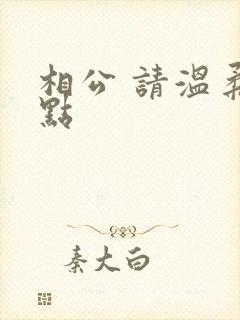 相公 請溫柔
點
秦大白